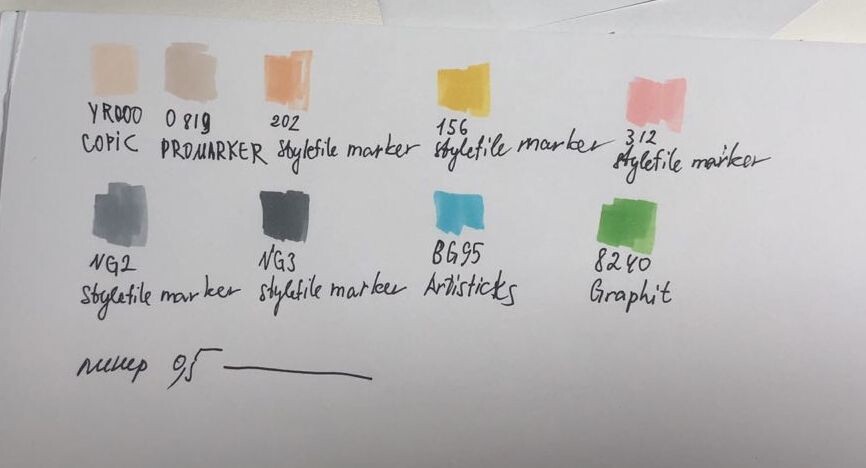 YR000 0819 202 156 312
COPIC PROMARKER Stylefile marker Stylefile marker Stylefile marker
NG2 NG3 BG95 8240
Stylefile marker Stylefile marker Artisticks Graphit
линер 0,5